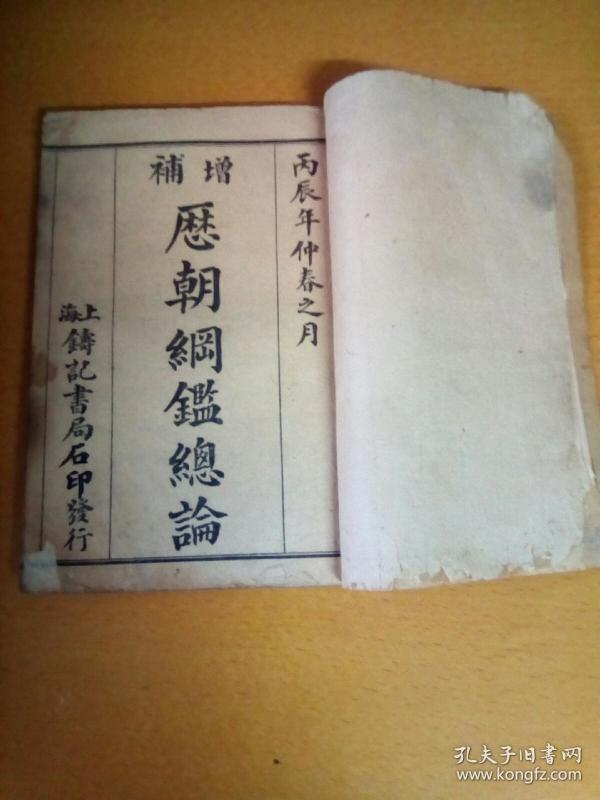 丙辰年仲春之月
增補
歷朝綱鑑總論
上海
鑄記書局石印發行
孔夫子旧书网
www.kongfz.com